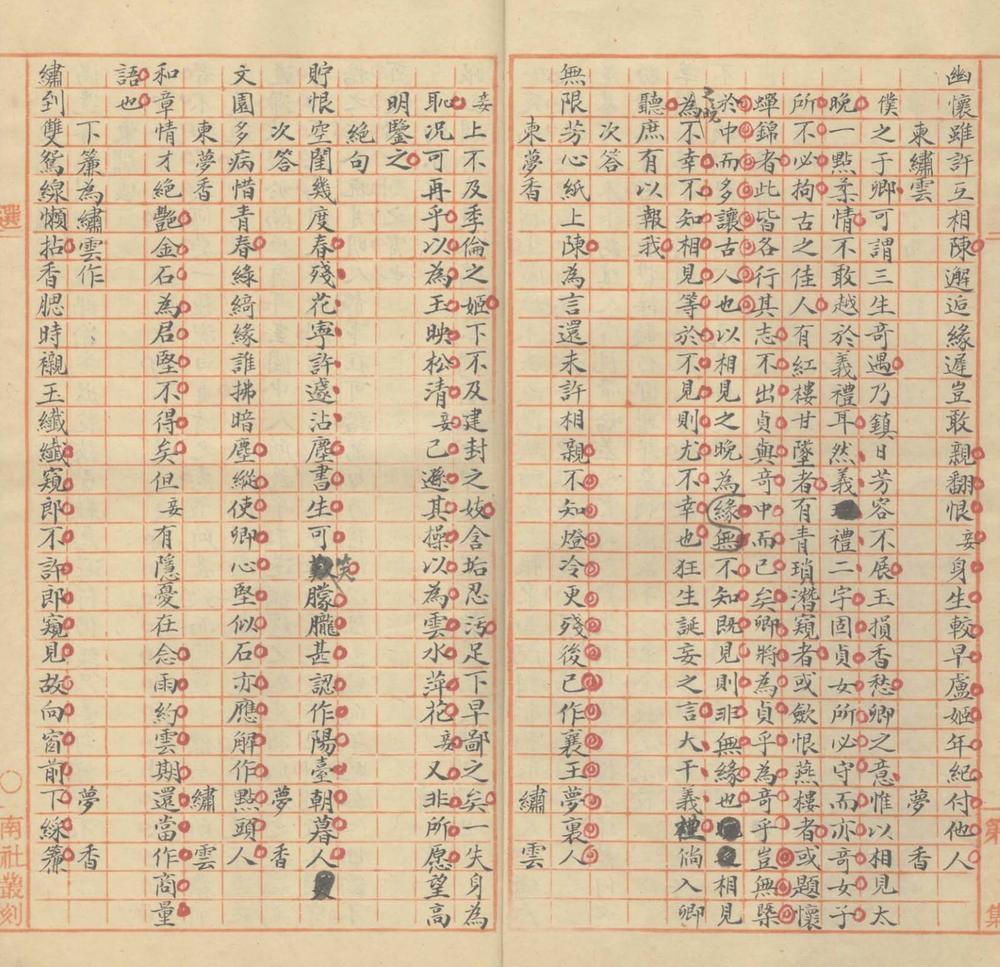 幽懷雖許互相陳邂逅緣遲豈敢親翻恨妾身生較早盧姬年紀付他人
東繡雲　夢香
僕之于卿可謂三生奇遇乃鎮日芳容不展玉損香愁卿之意惟以相見太
晚一點柔情不敢越於義禮耳然義禮二字固貞女所必守而亦奇女子
所不必拘古之佳人有紅樓甘墜者有青瑣潛窺者或歛恨燕樓者或題懷
蟬錦者此皆各行其志不出貞與奇中而已矣卿將為貞乎為奇乎豈無槩
於中而多讓古人也以相見之晚為緣無不知既見則非無緣也相見
之晚為不幸不知相見等於不見則尤不幸也狂生誕妄之言大干義禮倘入卿
聽庶有以報我
次答
無限芳心紙上陳為言還未許相親不知燈冷更殘後已作襄王夢裏人
東夢香　繡雲
妾上不及季倫之姬下不及建封之妓含垢忍污足下早鄙之矣一失身為
恥況可再乎以為玉映松清妾已遜其操以為雲水萍花妾又非所愿望高
明鑒之
絕句
貯恨空閨幾度春殘花寧許遽沾塵書生可笑朦朧甚認作陽臺朝暮人
次答　夢香
文園多病惜青春綠綺緣誰拂暗塵縱使卿心堅似石亦應解作點頭人
東夢香　繡雲
和章情才絕艷金石為君堅不得矣但妾有隱憂在念雨約雲期還當作商量
語也
下簾為繡雲作　夢香
繡到雙鴛線懶拈香腮時襯玉纖纖窺郎不許郎窺見故向窗前下綵簾
選
南社叢刻
第
集